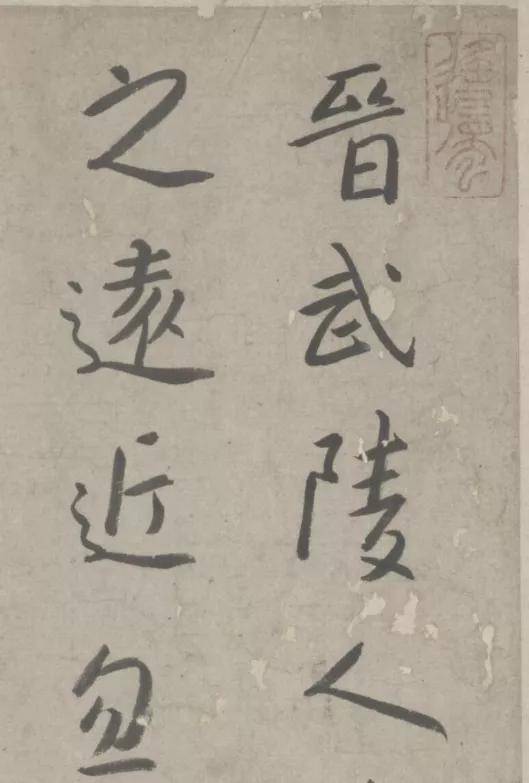 晉武陵人
之遠近忽